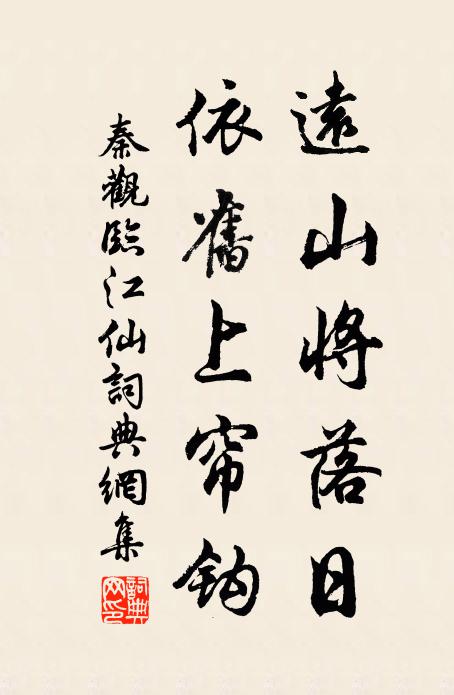 遠山將落日
依舊上帘鈎
秦觀臨江仙詞典網集
詞典网印